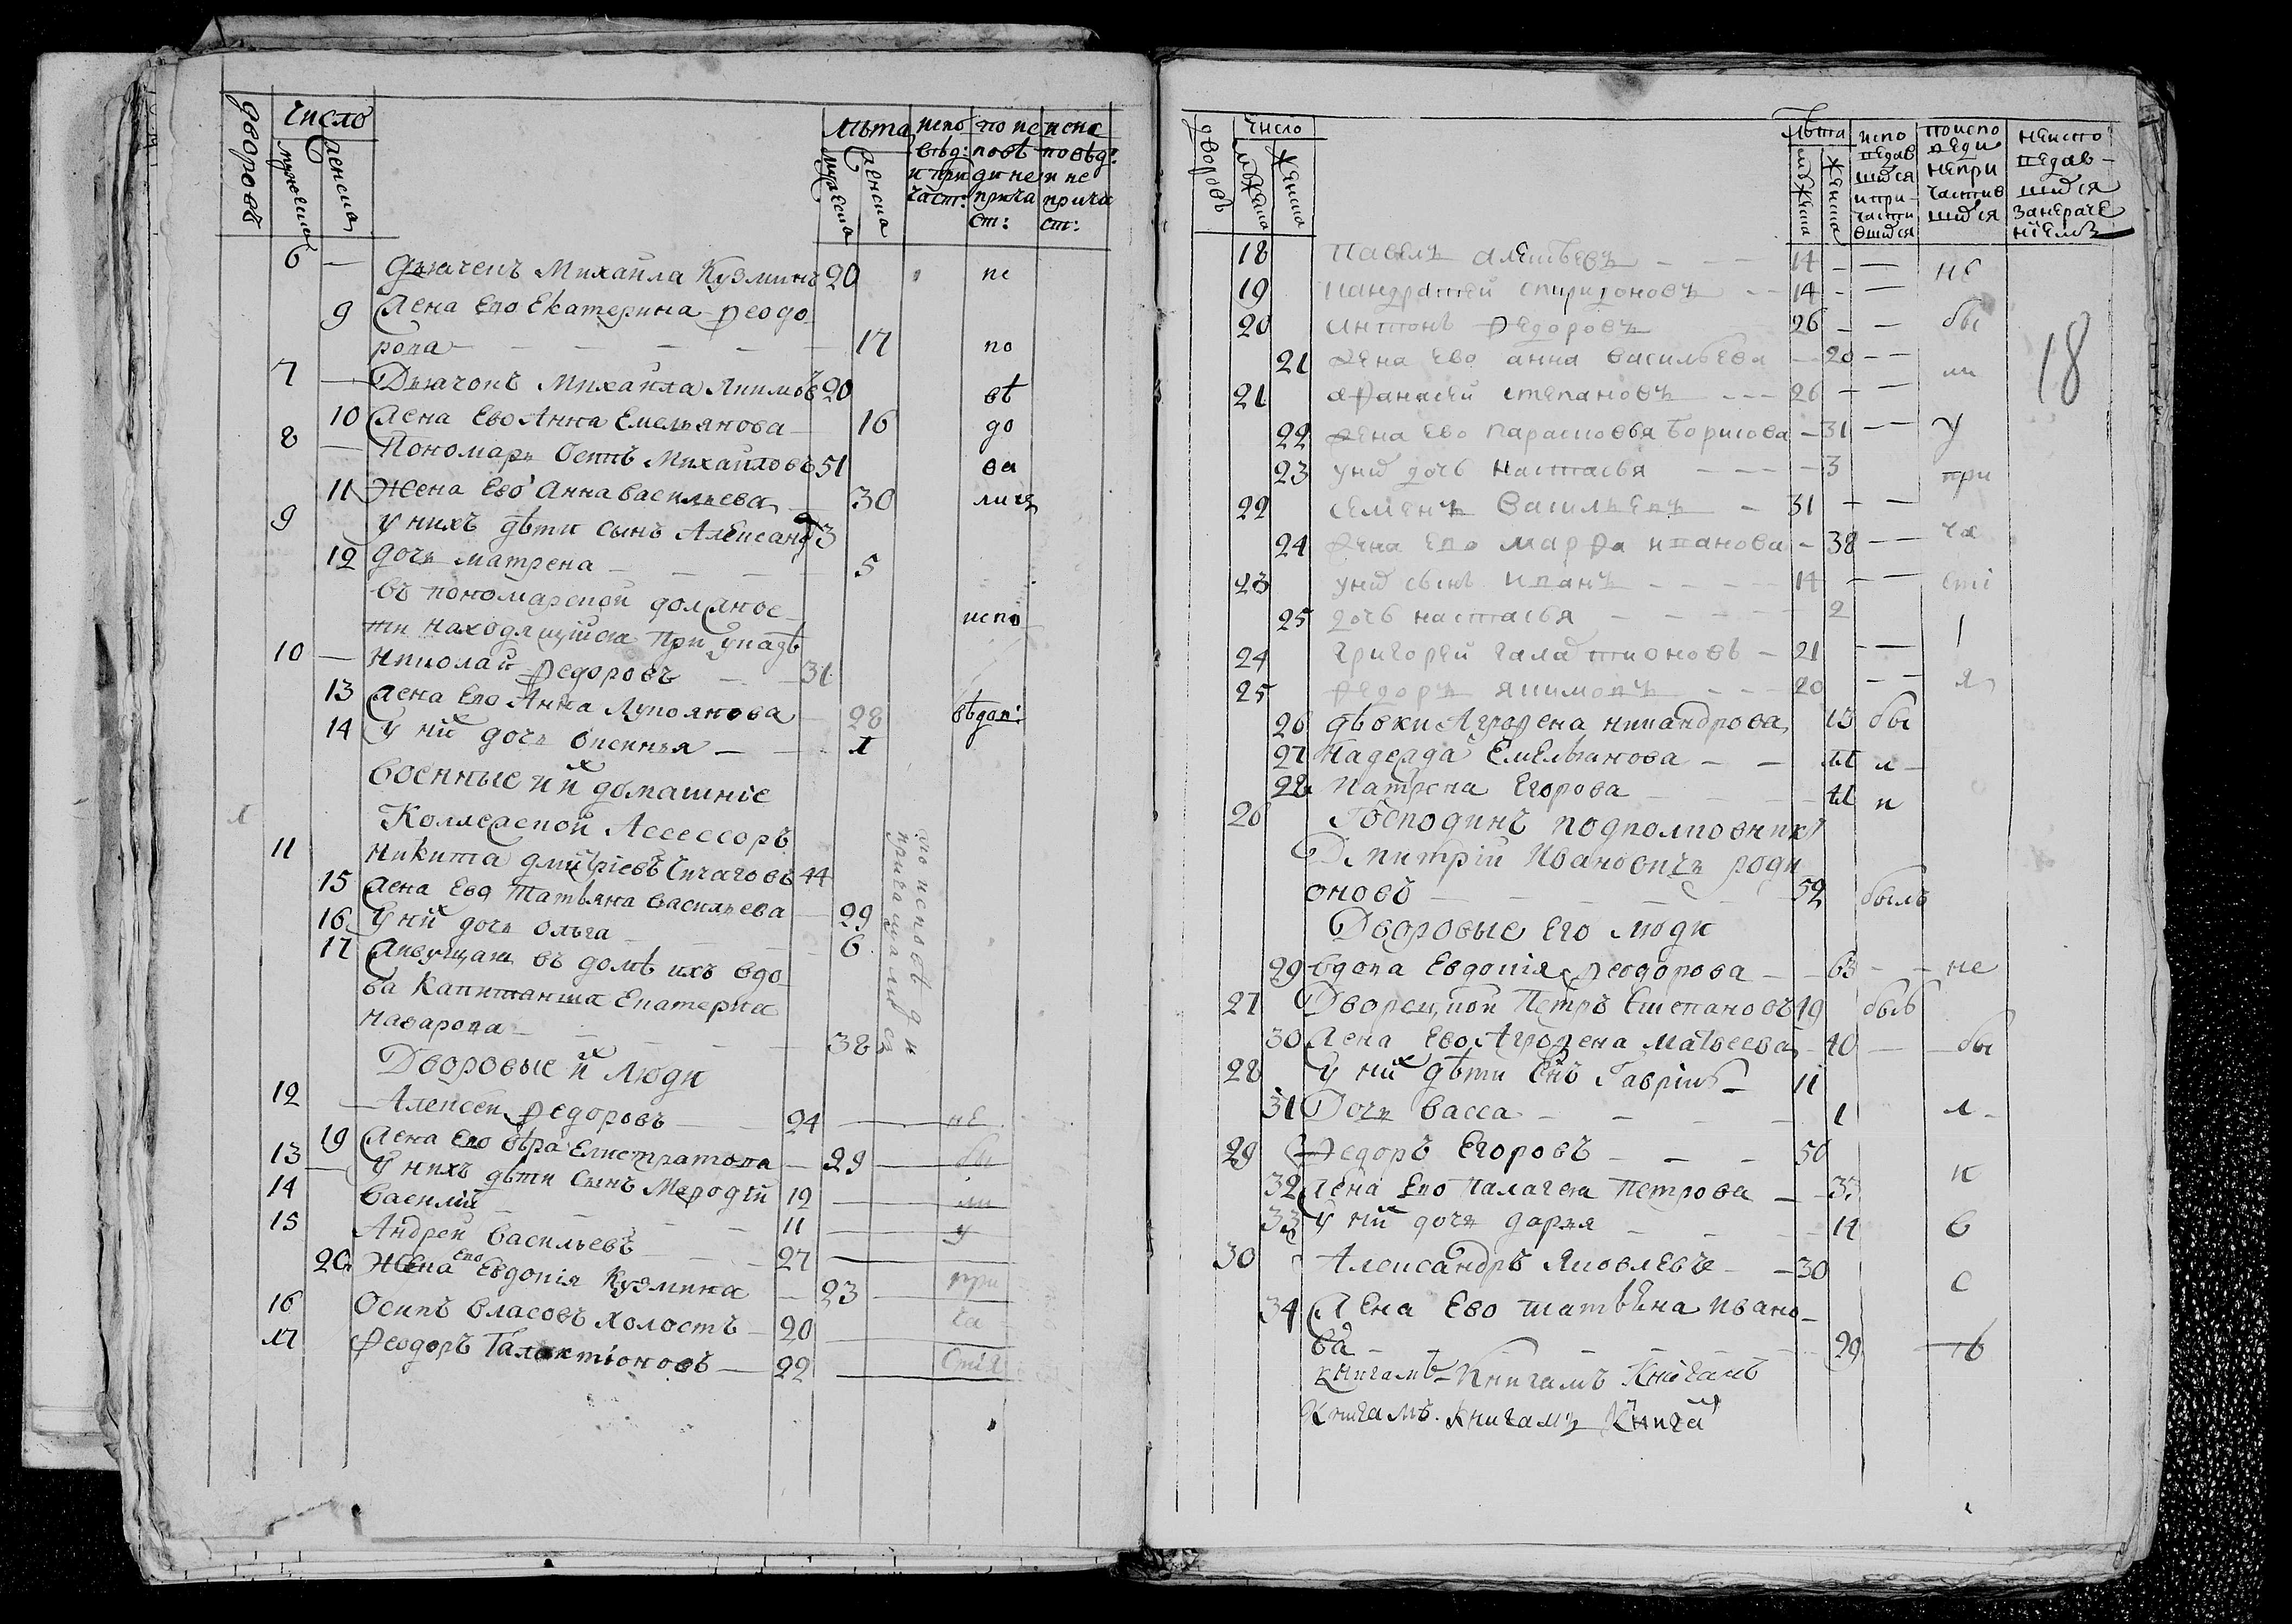 дворовъ
число
мужеска
женска
лѣта
мужеска
женска
испо
вѣд:
и при
част:
по ис
повѣ
ди не
прича
ст:
неис
повѣд:
и не
прича
ст:
6 — Дьячекъ Михайла Кузминъ 20 не
9 Жена ево Екатерина Феодо
рова — — — — — 17 по
7 — Дьячокъ Михайла Якимовъ 20 вѣ
10 Жена Ево Анна Емельянова — 16 до
8 — Пономарь Михайловъ 51 ва
11 Жена Ево Анна Васильева 30 лися
9 У нихъ дѣти сынъ Александ 3
12 дочь матрена — — — 5
въ пономарской должнос
ти находящийся при испо
10 — Николай Федоровъ — 31
13 Жена Ево Анна Лупоянова — 28 вѣдал:
14 У них дочь — — 1
военные и их домашніе
1 Колежской Ассессоръ
11 Никита дмитріевъ Чичаговъ 44
15 Жена Ево Татьяна Васильева — 29
16 У них дочь Ольга — — — 6
17 Живущая въ домѣ ихъ вдо
ва Капитанша Екатерина
Назарова — — — — 38
по исповѣди
причащались
Дворовые их Люди
12 — Алексей Федоровъ — 24 — не
19 Жена Ево Вѣра Елистратова — 29 — бы
13 — У нихъ дѣти Сынъ Мефодій 12 — ли
14 Василій — — — 11 — у
15 Андрей Васильевъ — 27 —
20 Жена ево Евдокія Кузмина — 23 — при
16 Осипъ Власовъ холостъ — 20 — ча
17 Феодоръ Галактіоновъ — 22 — стія
дворовъ
число
мужеска
женска
лѣта
мужеска
женска
испо
ведав
шихся
и при-
части
вшихся
по испо
веди
непри
частив
шихся
неиспо
ведав-
шихся
занераче
ніемъ
18
18 Павелъ — — — 14 — — не
19 Пандратей Спиридоновъ — — 14 — —
20 Антонъ Федоровъ 26 — — бы
21 Жена Ево анна Васильева — 20 — —
21 Афанасей Степановъ — — — 26 — — ли
22 Жена Ево Парасковья Борисова — 31 — — у
23 У них дочь Настасья — — — — 3 при
22 Семенъ Васильевъ — 31 — —
24 Жена Ево Марфа Иванова — 38 — — ча
23 У них сынъ Иванъ — — — — 14 — — сті
25 дочь настасья — — — — 2
24 Григорей Галактионовъ — 21 — —
25 Федоръ Якимовъ — — — 20 — — я
26 дѣвки Агрофена Никандрова 13 бы
27 Надежда Емельянова — — 11 л —
28 Матрена Егорова — — и
26 Господинъ подполковникъ
Дмитрій Ивановичь роди
оновъ — — — — — 52 былъ
Дворовые Его люди
29 вдова Евдокія Феодорова — — 63 — — не
27 Дворецкой Петръ Степановъ 49 былъ
30 Жена Ево Агрофена Матвеева 40 — — бы
28 У них дѣти Снъ Гаврилъ — 11
31 Дочь Васса — — — — 1 л —
29 Федоръ Егоровъ — — — 50
32 Жена Ево Палагея Петрова — — 35 и
33 У них дочь дарья — — — 14 в
30 Александръ Яковлевъ — — 30 с
34 Жена Ево татьяна Ивано-
ва — — — — — — 29 — ѣ
книгамъ Книгамъ Книгамъ
Книгамъ. книгамъ Книга